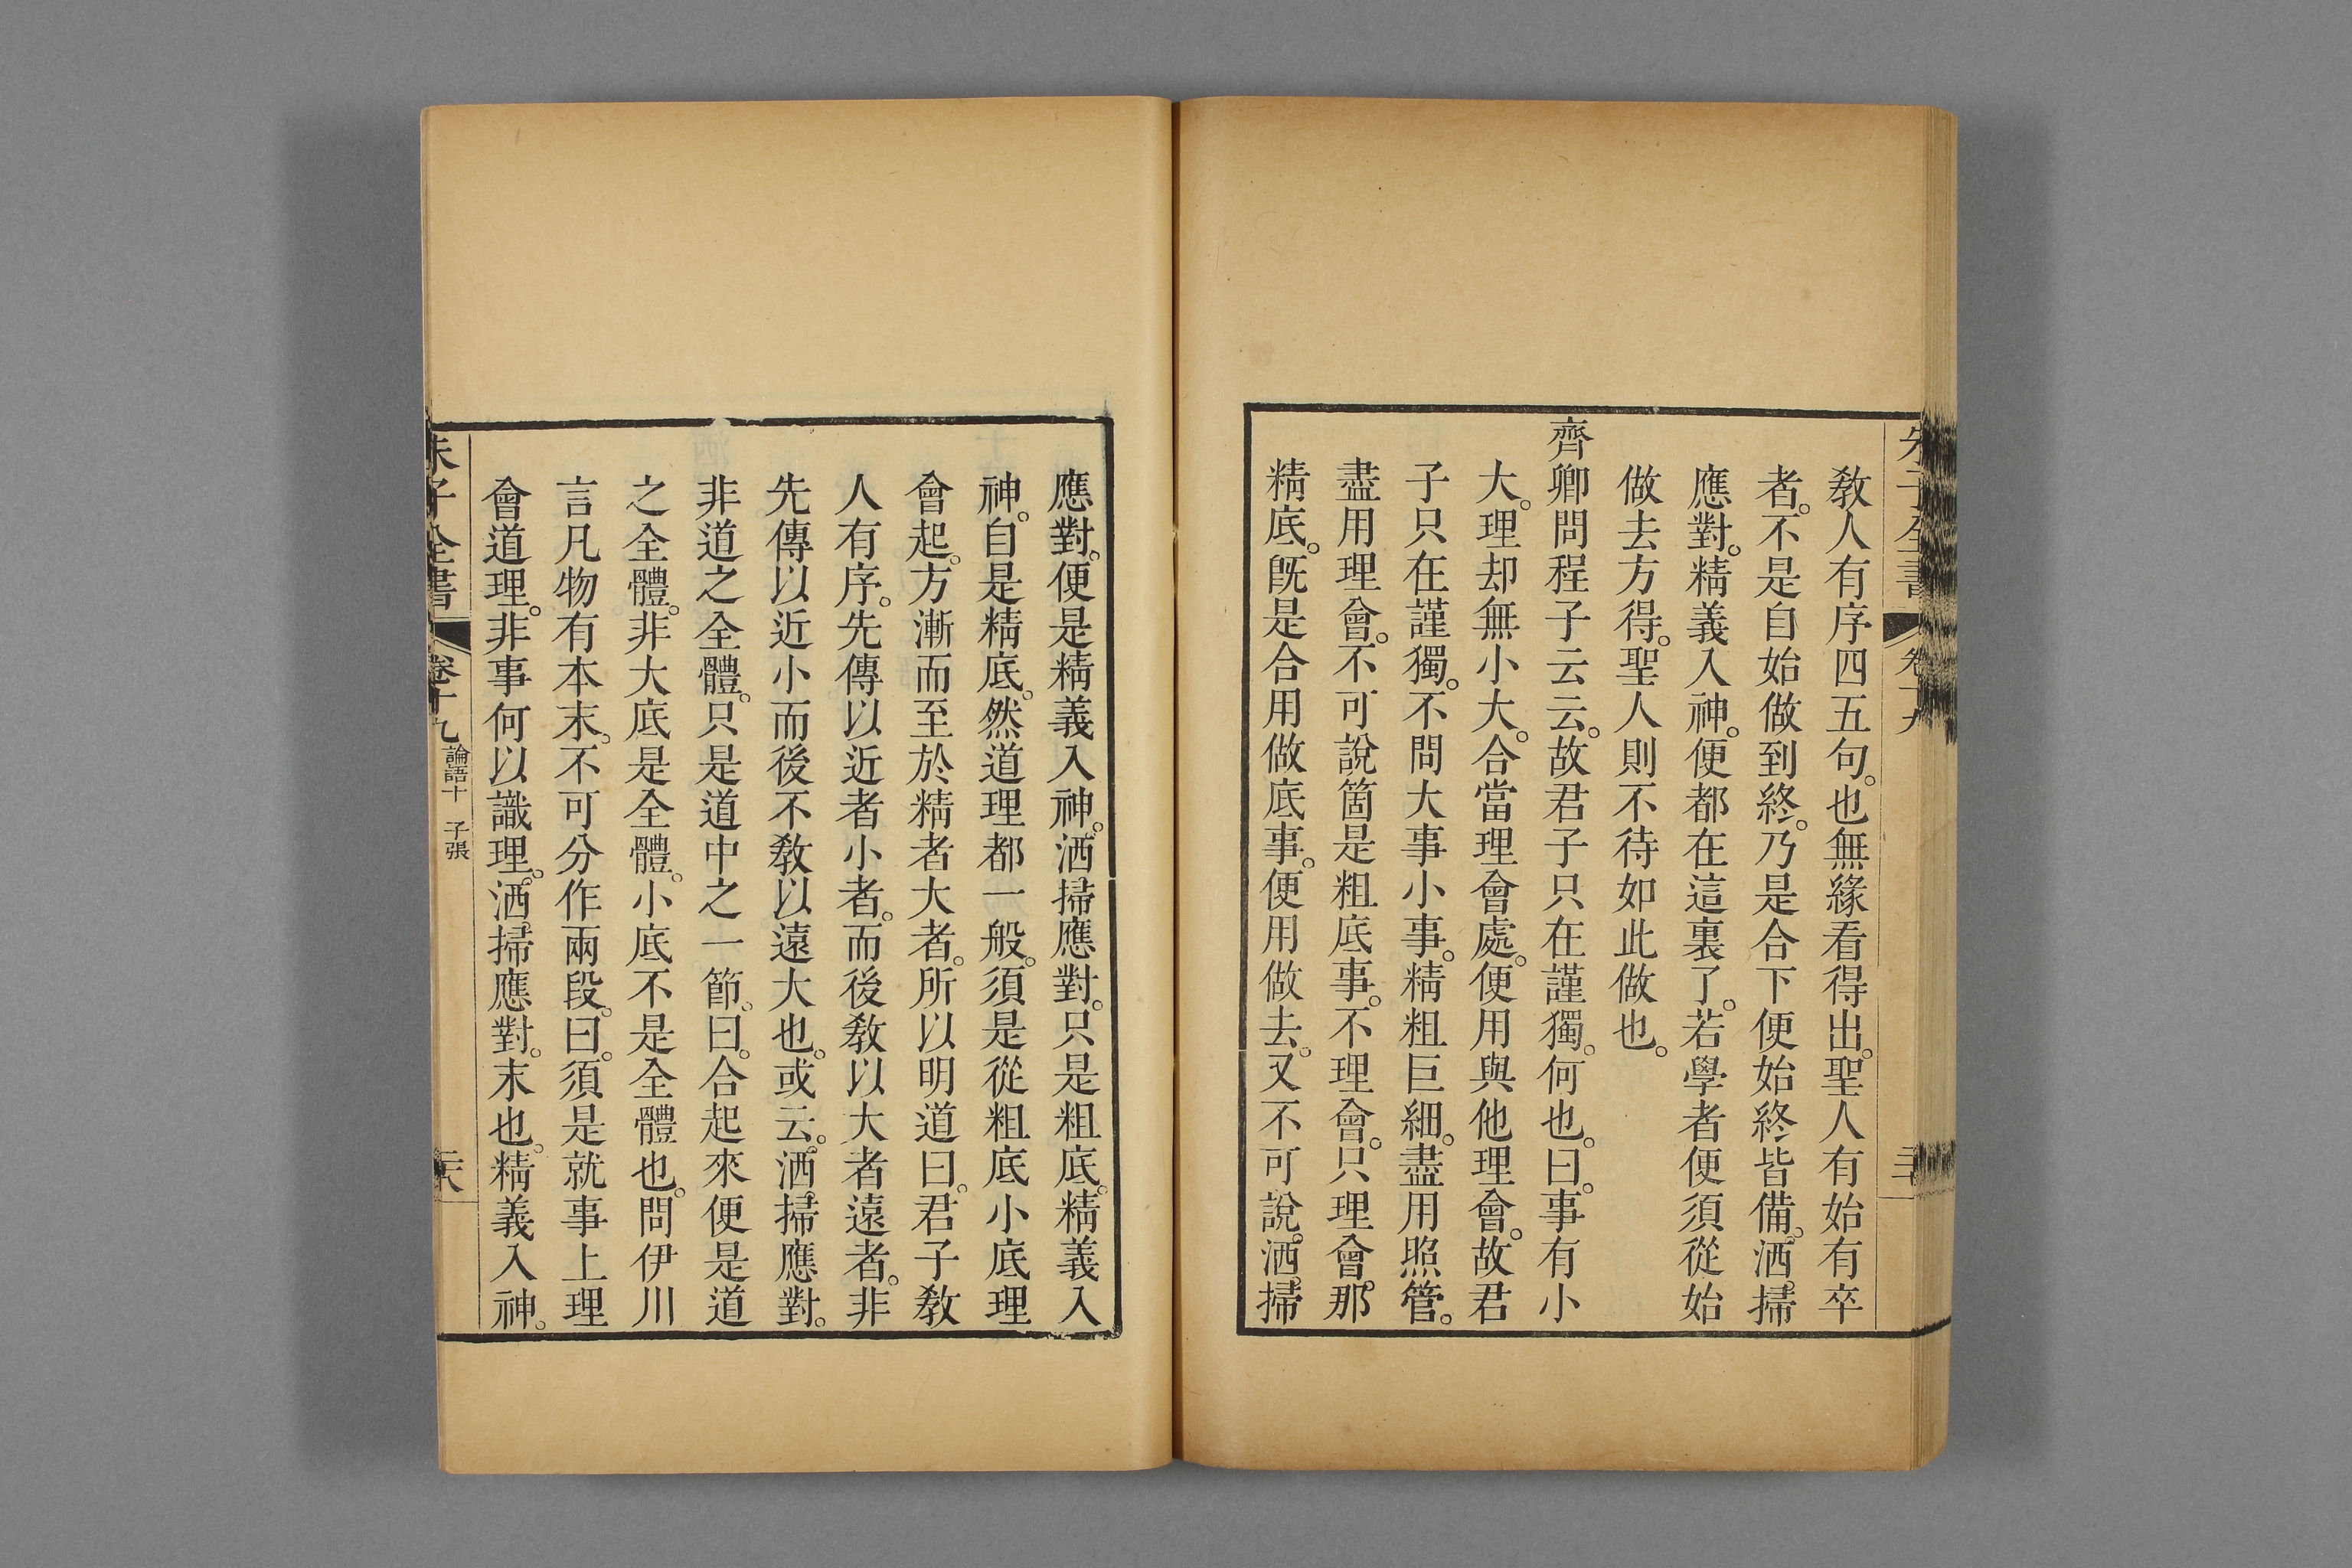 敎人有序四五句。也無緣看得出。聖人有始有卒
者。不是自始做到終。乃是合下便始終皆備。洒掃
應對。精義入神。便都在這裏了。若學者便須從始
做去方得。聖人則不待如此做也。
齊卿問程子云云。故君子只在謹獨。何也。曰。事有小
大。理却無小大。合當理會處。便用與他理會。故君
子只在謹獨。不問大事小事。精粗巨細。盡用照管。
盡用理會。不可說箇是粗底事。不理會。只理會那
精底。旣是合用做底事。便用做去。又不可說。洒掃
應對。便是精義入神。洒掃應對。只是粗底。精義入
神。自是精底。然道理都一般。須是從粗底小底理
會起。方漸而至於精者大者。所以明道曰。君子敎
人有序。先傳以近者小者。而後敎以大者遠者。非
先傳以近小而後不敎以遠大也。或云。洒掃應對。
非道之全體。只是道中之一節。曰。合起來便是道
之全體。非大底是全體。小底不是全體也。問伊川
言凡物有本末。不可分作兩段。曰。須是就事上理
會道理。非事何以識理。洒掃應對。末也。精義入神。
朱子全書 卷十九 論語十 子張